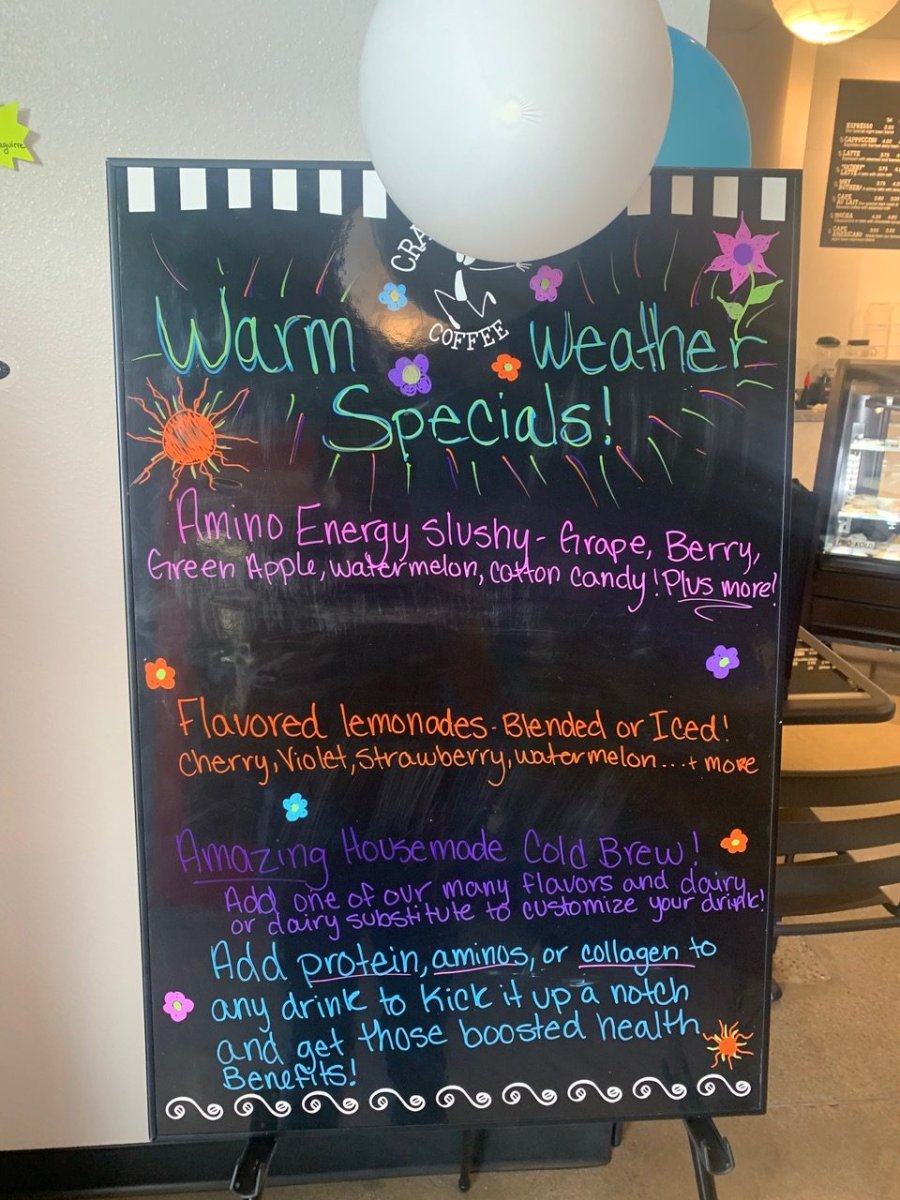 CRA
COFFEE
Warm Weather
Specials!
Amino Energy slushy - Grape, Berry,
Green Apple, watermelon, cotton candy! Plus more!
Flavored lemonades - Blended or Iced!
Cherry, Violet, Strawberry, watermelon...+ more
Amazing Housemade Cold Brew!
Add one of our many flavors and dairy
or dairy substitute to customize your drink!
Add protein, aminos, or collagen to
any drink to kick it up a notch
and get those boosted health
Benefits!
ESPRESSO
CAPPUCCINO
LATTE
"SKINNY"
LATTE
WHY
BOTHER?
CAFE
AU LAIT
MOCHA
CAFE
AMERICANO